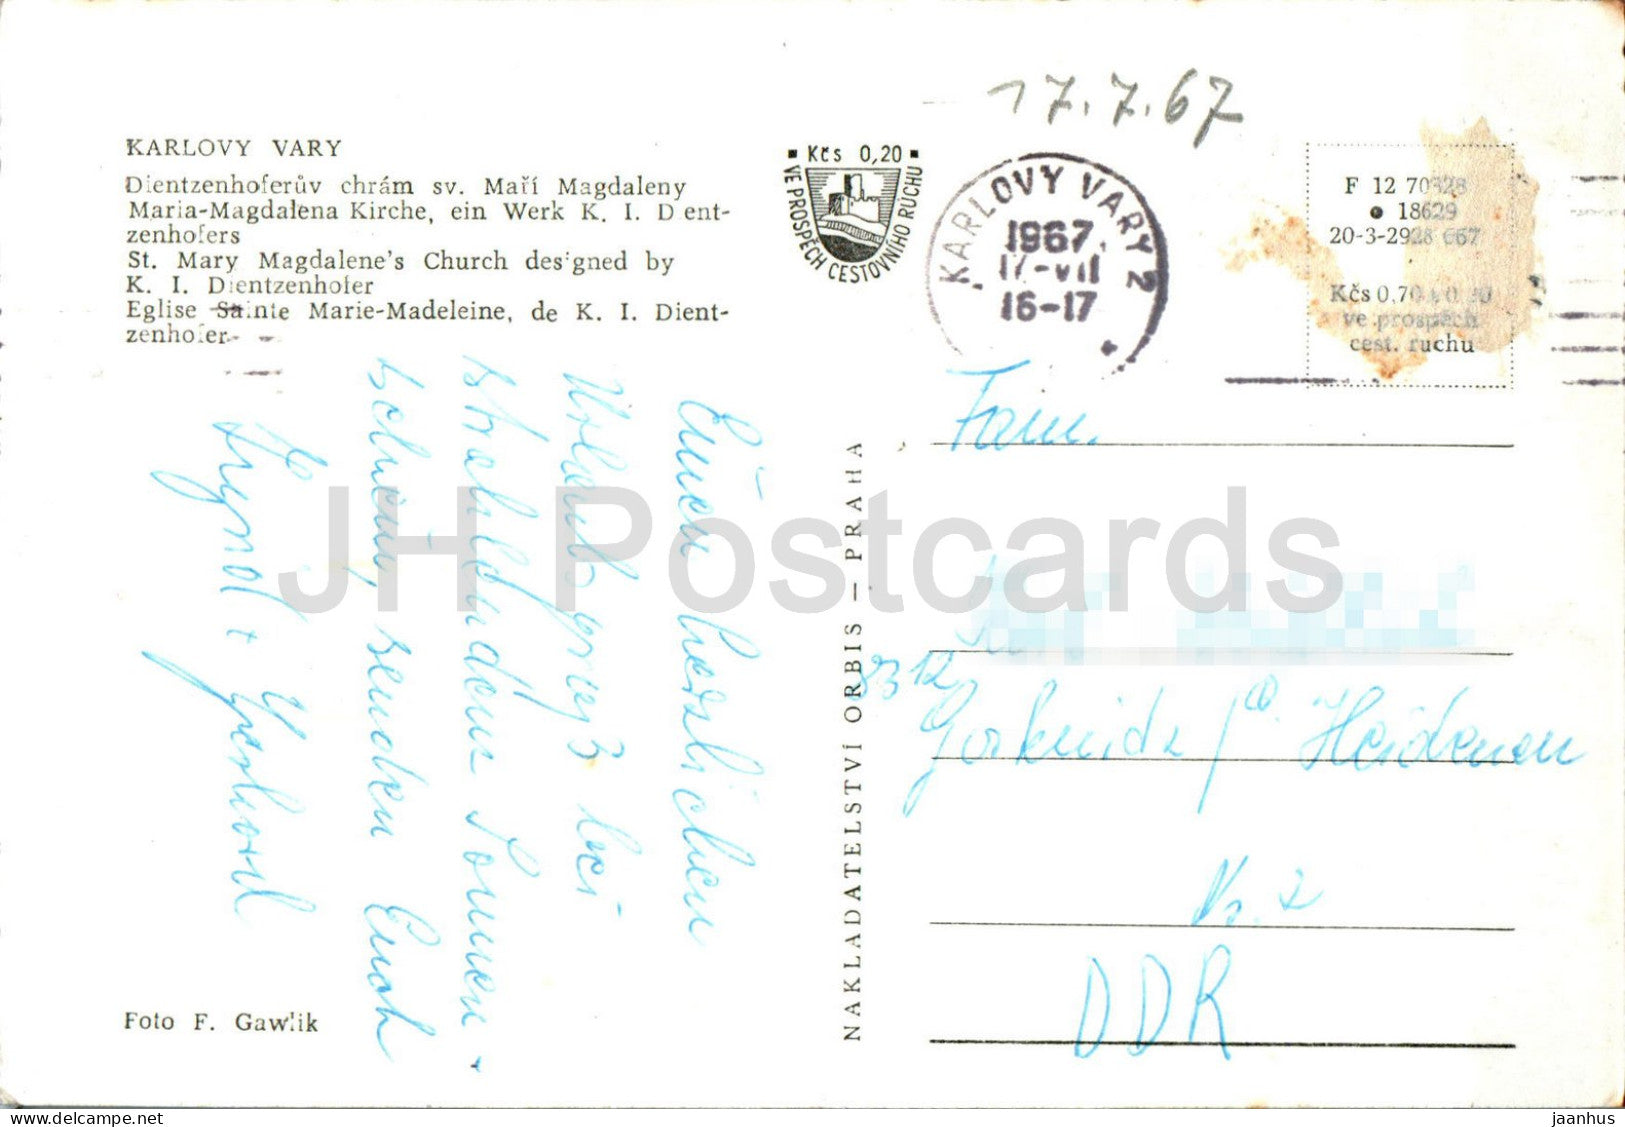 17.7.67
KARLOVY VARY
Dientzenhoferův chrám sv. Maří Magdaleny
Maria-Magdalena Kirche, ein Werk K. I. Dient-
zenhofers
St. Mary Magdalene's Church designed by
K. I. Dientzenhofer
Eglise Sainte Marie-Madeleine, de K. I. Dient-
zenhofer
Kčs 0,20
VE PROSPĚCH CESTOVNÍHO RUCHU
KARLOVY VARY 2
1967
17-VII
16-17
F 12 70328
18629
20-3-2928 667
Kčs 0,70 + 0,20
ve prospěch
cest. ruchu
Einen herzlichen
Urlaubsgruß bei
strahlendem Sonnen-
schein, senden Euch
Gerhard
Fam.
8312
Heidenau
Nr. 2
DDR
NAKLADATELSTVÍ ORBIS — PRAHA
Foto F. Gawlik
JH Postcards
delcampe.net
jaanhus